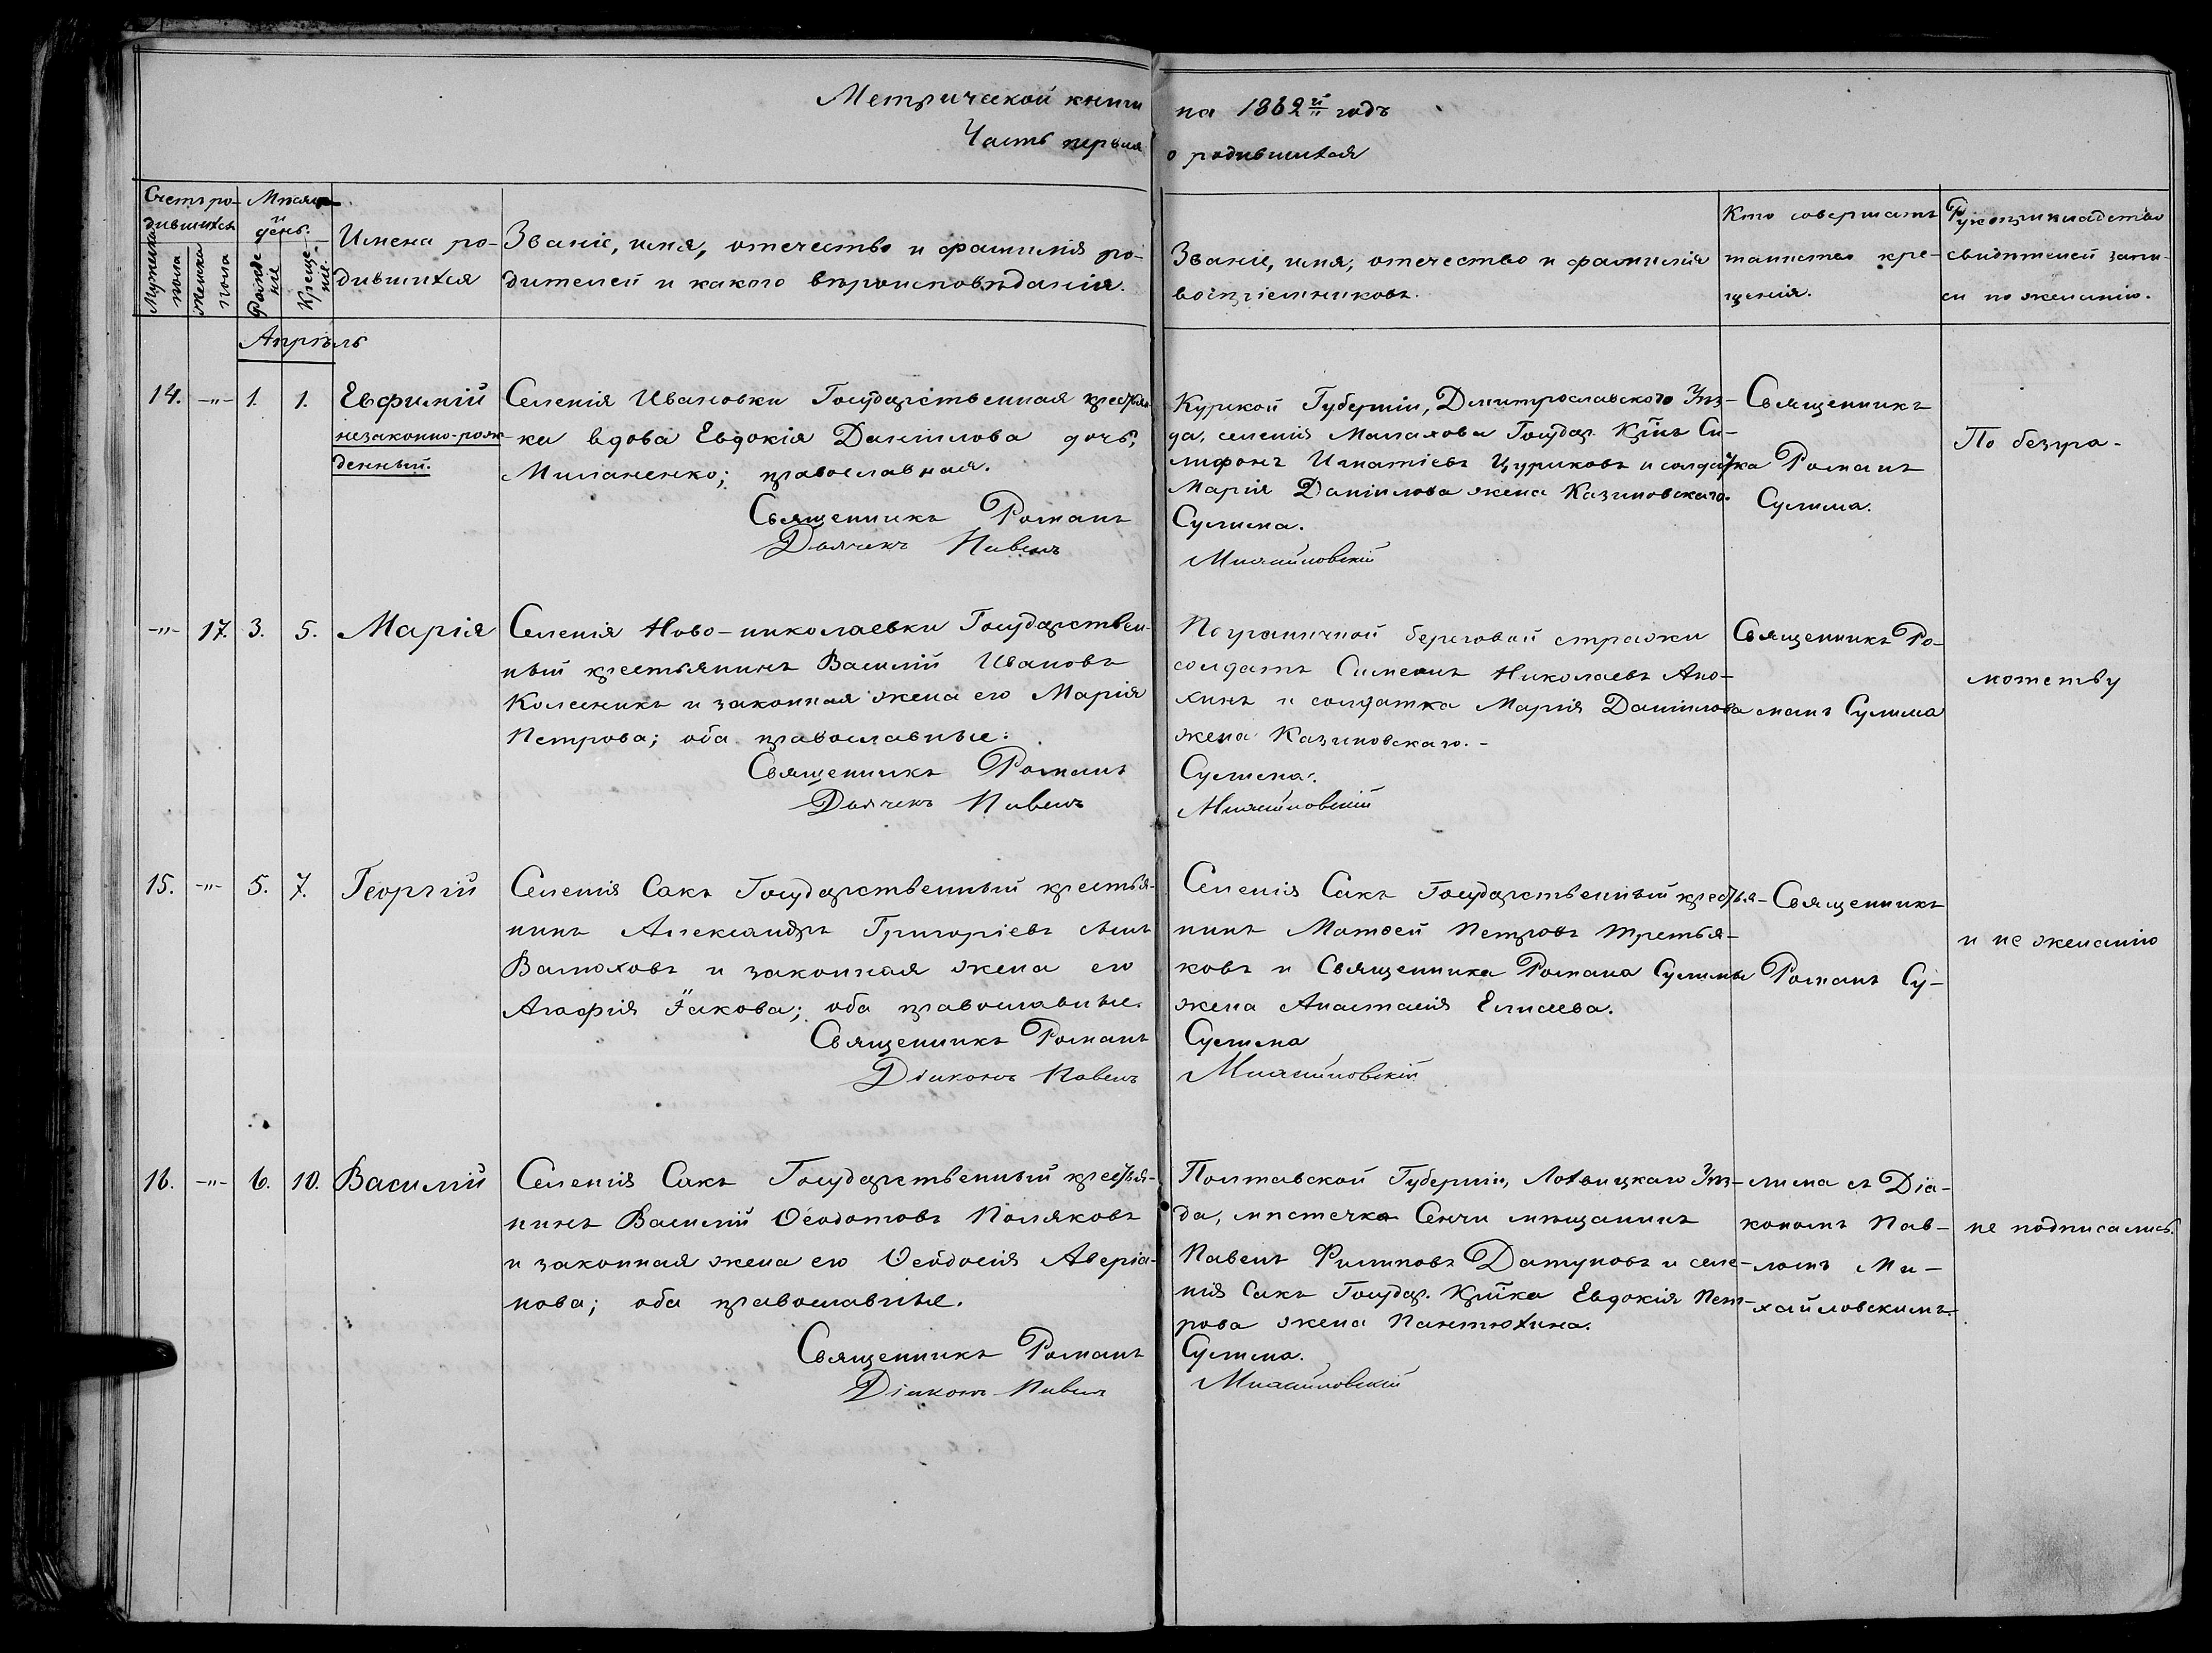 Метрической книги
на 1862й годъ
Часть первая
о родившихся
Счетъ ро-
дившихся
Мужеска
пола
Женска
пола
Мѣсяцъ
и
день.
Рожде
ніе
Креще-
ніе.
Имена ро-
дившихся
Званіе, имя, отечество и фамилія ро-
дителей и какого вѣроисповѣданія.
Званіе, имя, отечество и фамилія
воспріемниковъ.
Кто совершалъ
таинство кре-
щенія.
Рукоприкладство
свидѣтелей запи-
си по желанію.
Апрѣль
14. -"- 1. 1.
Евфимій
незаконно-рож-
денный.
Селенія Ивановки Государственная крестьян-
ка вдова Евдокія Даніилова дочь,
Миланенко; православная.
Священникъ Романъ
Дьячекъ Павелъ
Курской Губерніи, Дмитрославского Уѣз-
да, селенія Малахова Государ. Кр̃нъ Си-
лифонъ Игнатіевъ Цуриковъ и солдатка
Марія Даніилова жена Казиновскаго.
Сулима.
Михайловскій
Священникъ
Романъ
Сулима.
По безгра-
-"- 17. 3. 5.
Марія
Селенія Ново-николаевки Государствен-
ный крестьянинъ Василій Ивановъ
Колесникъ и законная жена его Марія
Петрова; оба православные.
Священникъ Романъ
Дьячекъ Павелъ
Пограничной береговой стражи
солдатъ Симеонъ Николаевъ Ано-
хинъ и солдатка Марія Даніилова
жена Казиновскаго.-
Сулима.
Михайловскій
Священникъ Ро-
манъ Сулима
мотству
15. -"- 5. 7.
Георгій
Селенія Сакъ Государственный крестья-
нинъ Александръ Григоріевъ сынъ
Валюховъ и законная жена его
Агафія Іакова; оба православные.
Священникъ Романъ
Діаконъ Павелъ
Селенія Сакъ Государственный крестья-
нинъ Матвей Петровъ Третья-
ковъ и Священника Романа Сулимы
жена Анастасія Елисеева.
Сулима
Михайловскій
Священникъ
Романъ Су-
и не желанію
16. -"- 6. 10.
Василій
Селенія Сакъ Государственный крестья-
нинъ Василій Ѳеодотовъ Поляковъ
и законная жена его Ѳеодосія Аверіа-
нова; оба православные.
Священникъ Романъ
Діаконъ Павелъ
Полтавской Губерніи, Лохвицкаго Уѣз-
да, мѣстечка Сенчи мѣщанинъ
Павелъ Филиповъ Датуновъ и селе-
нія Сакъ Государ. Кр̃нка Евдокія Пет-
рова жена Пантюхина.
Сулима.
Михайловскій
лима съ Діа-
кономъ Пав-
ломъ Ми-
хайловскимъ.
не подписались.